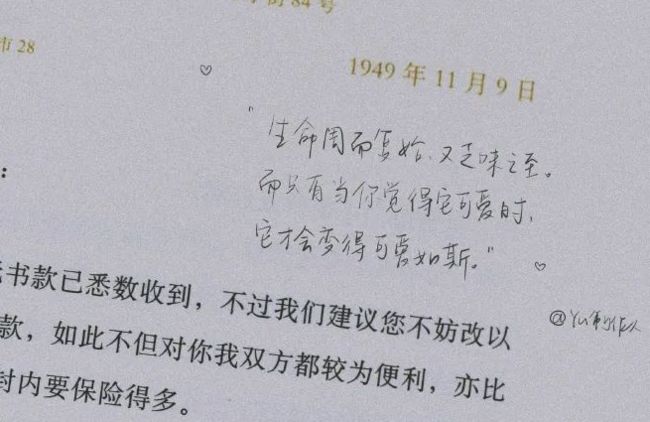 街84号
市28
1949年11月9日
"生命周而复始、又乏味之至。
而只有当你觉得它可爱时,
它才会变得可爱如斯。"
：
书款已悉数收到，不过我们建议您不妨改以
款，如此不但对你我双方都较为便利，亦比
封内要保险得多。